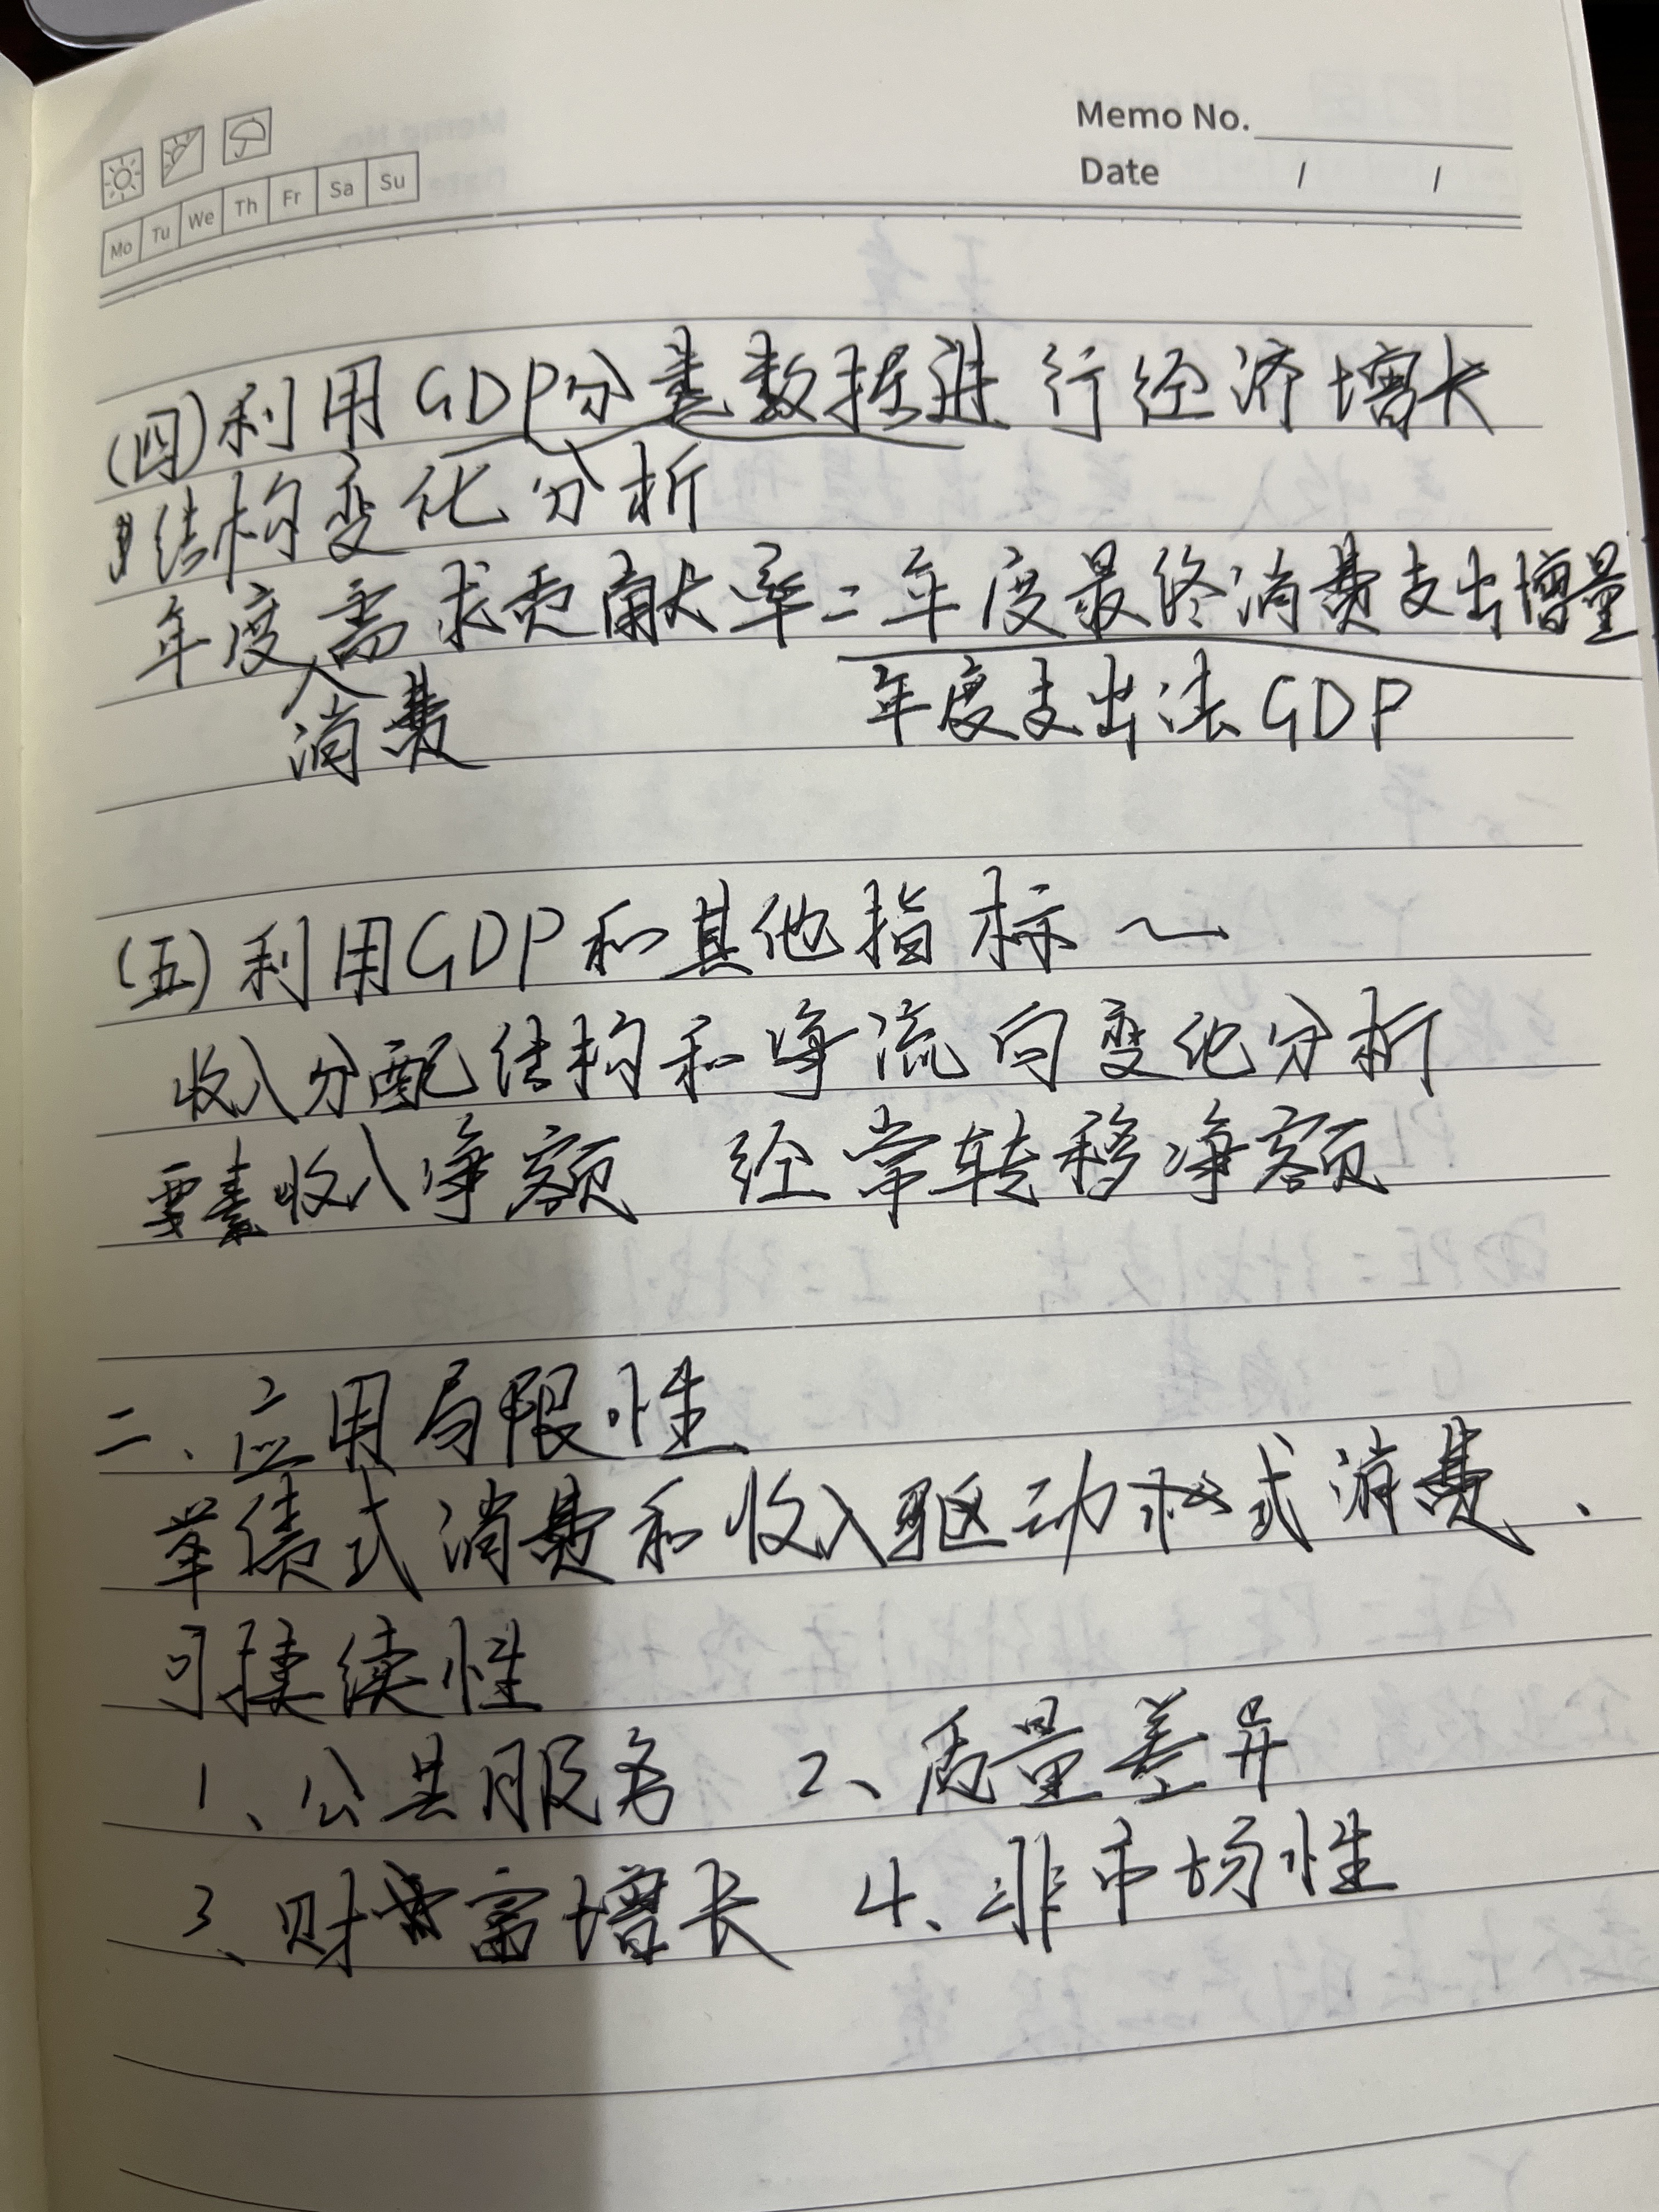 Memo No.
Date / /
Mo Tu We Th Fr Sa Su
(四)利用GDP分类数据进行经济增长
结构变化分析
年度需求贡献率=年度最终消费支出增量
消费 年度支出法GDP
(五)利用GDP和其他指标~
收入分配结构和净流向变化分析
要素收入净额 经常转移净额
二、应用局限性
举债式消费和收入驱动式消费、
可持续性
1、公共服务 2、质量差异
3、财富增长 4、非市场性